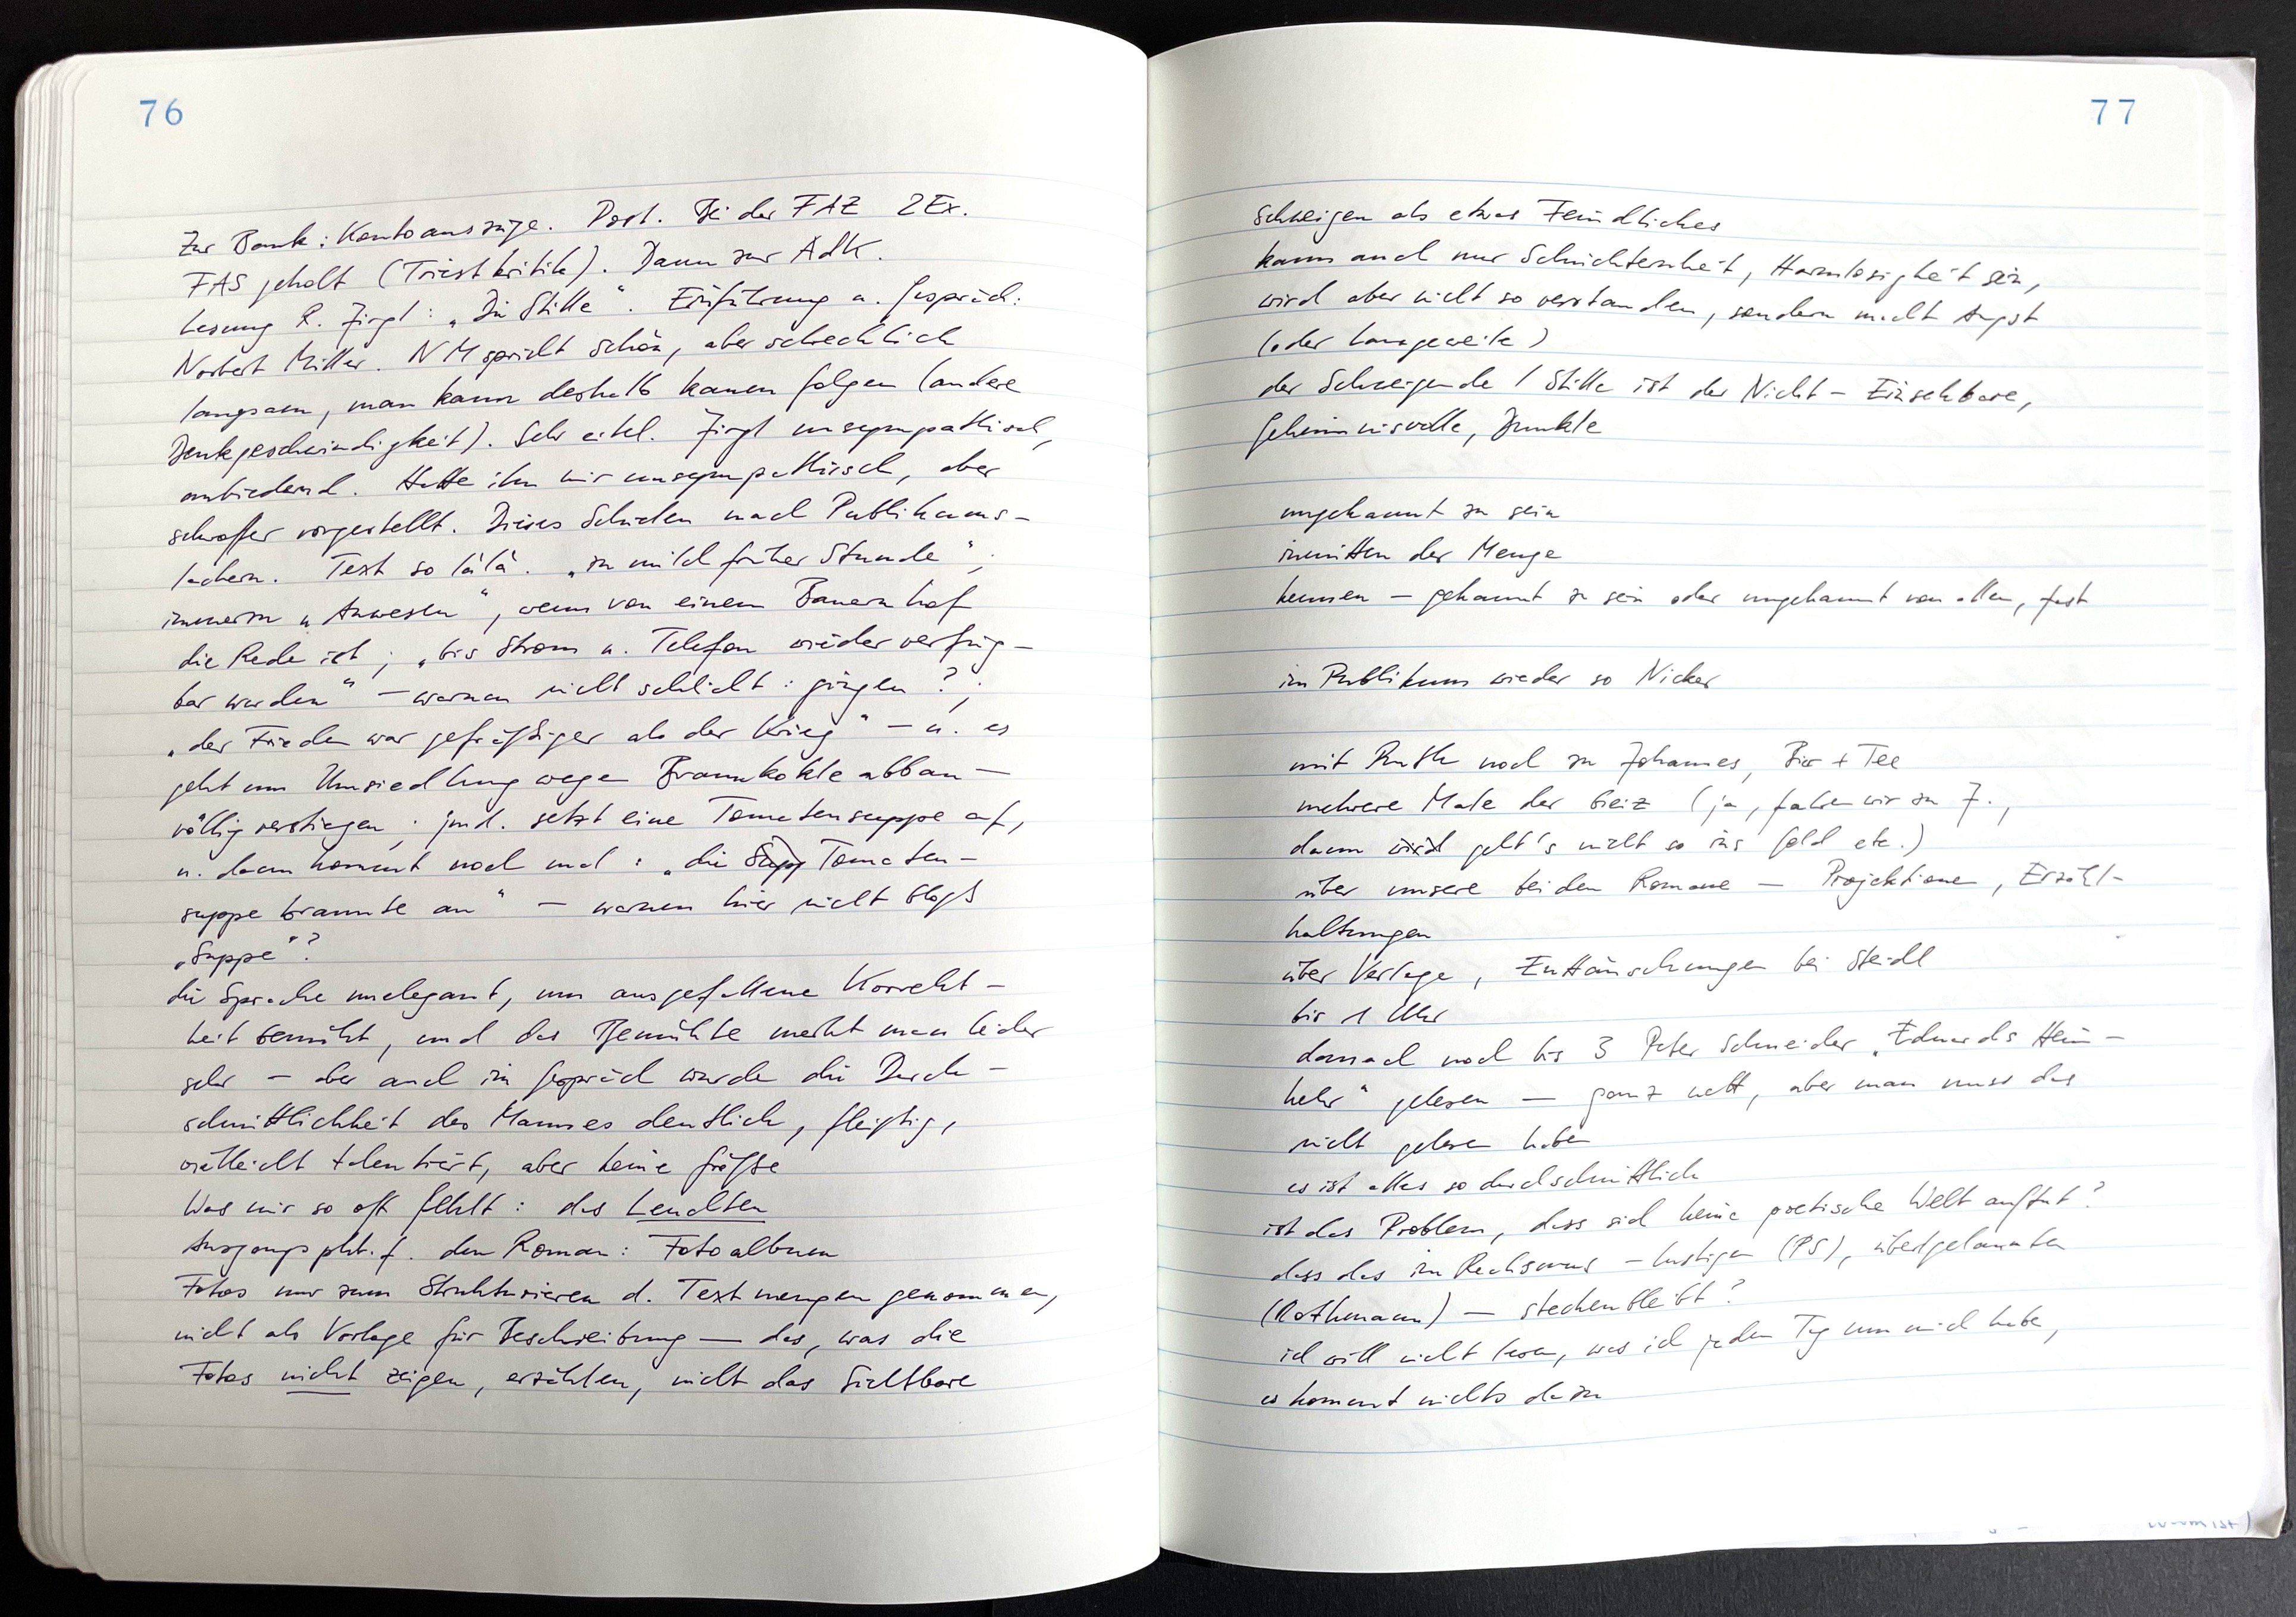 76
Zur Bank: Kontoauszüge. Post. Bei der FAZ 2 Ex.
FAS geholt (Triestkritik). Dann zur AdK.
Lesung R. Jirgl: „Die Stille“. Einführung u. Gespräch:
Norbert Miller. NM spricht schön, aber schrecklich
langsam, man kann deshalb kaum folgen (andere
Denkgeschwindigkeit). Sehr eitel. Jirgl unsympathisch,
anbiedernd. Hatte ihn mir unsympathisch, aber
schroffer vorgestellt. Dieses Schielen nach Publikums-
lachern. Text so làlà. „zu milchfrüher Stunde“;
immerzu „Anwesen“, wenn von einem Bauernhof
die Rede ist; „bis Strom u. Telefon wieder verfüg-
bar wurden“ – warum nicht schlicht: gingen?;
„der Frieden war gefräßiger als der Krieg“ – u. es
geht um Umsiedlung wegen Braunkohleabbau –
völlig verstiegen; jmd. setzt eine Tomatensuppe auf,
u. dann kommt noch mal: „die Supp Tomaten-
suppe brannte an“ – warum hier nicht bloß
„Suppe“?
die Sprache unelegant, um ausgefallene Korrekt-
heit bemüht, und das Bemühte merkt man leider
sehr – aber auch im Gespräch wurde die Durch-
schnittlichkeit des Mannes deutlich, fleißig,
vielleicht talentiert, aber keine Größe
Was mir so oft fehlt: das Leuchten
Ausgangspkt. f. den Roman: Fotoalbum
Fotos nur zum Strukturieren d. Textmengen genommen,
nicht als Vorlage für Beschreibung – das, was die
Fotos nicht zeigen, erzählen, nicht das Sichtbare
77
Schweigen als etwas Feindliches
kann auch nur Schüchternheit, Harmlosigkeit sein,
wird aber nicht so verstanden, sondern macht Angst
(oder Langeweile)
der Schweigende / Stille ist der Nicht-Einsehbare,
Geheimnisvolle, Dunkle
ungekannt zu sein
inmitten der Menge
kennen – gekannt zu sein oder ungekannt von allen, fast
im Publikum wieder so Nicker
mit Ruth noch zu Johannes, Bier + Tee
mehrere Male der Geiz (ja, fahren wir zu J.,
dann wird geht's nicht so ins Geld etc.)
über unsere beiden Romane – Projektionen, Erzähl-
haltungen
über Verlage, Enttäuschungen bei Steidl
bis 1 Uhr
danach noch bis 3 Peter Schneider „Eduards Heim-
kehr“ gelesen – ganz nett, aber man muss das
nicht gelesen haben
es ist alles so durchschnittlich
ist das Problem, dass sich keine poetische Welt auftut?
dass das im Realismus – lustigen (PS),
(Rothmann) – steckenbleibt?
ich will nicht lesen, was ich jeden Tag um mich habe,
es kommt nichts dazu